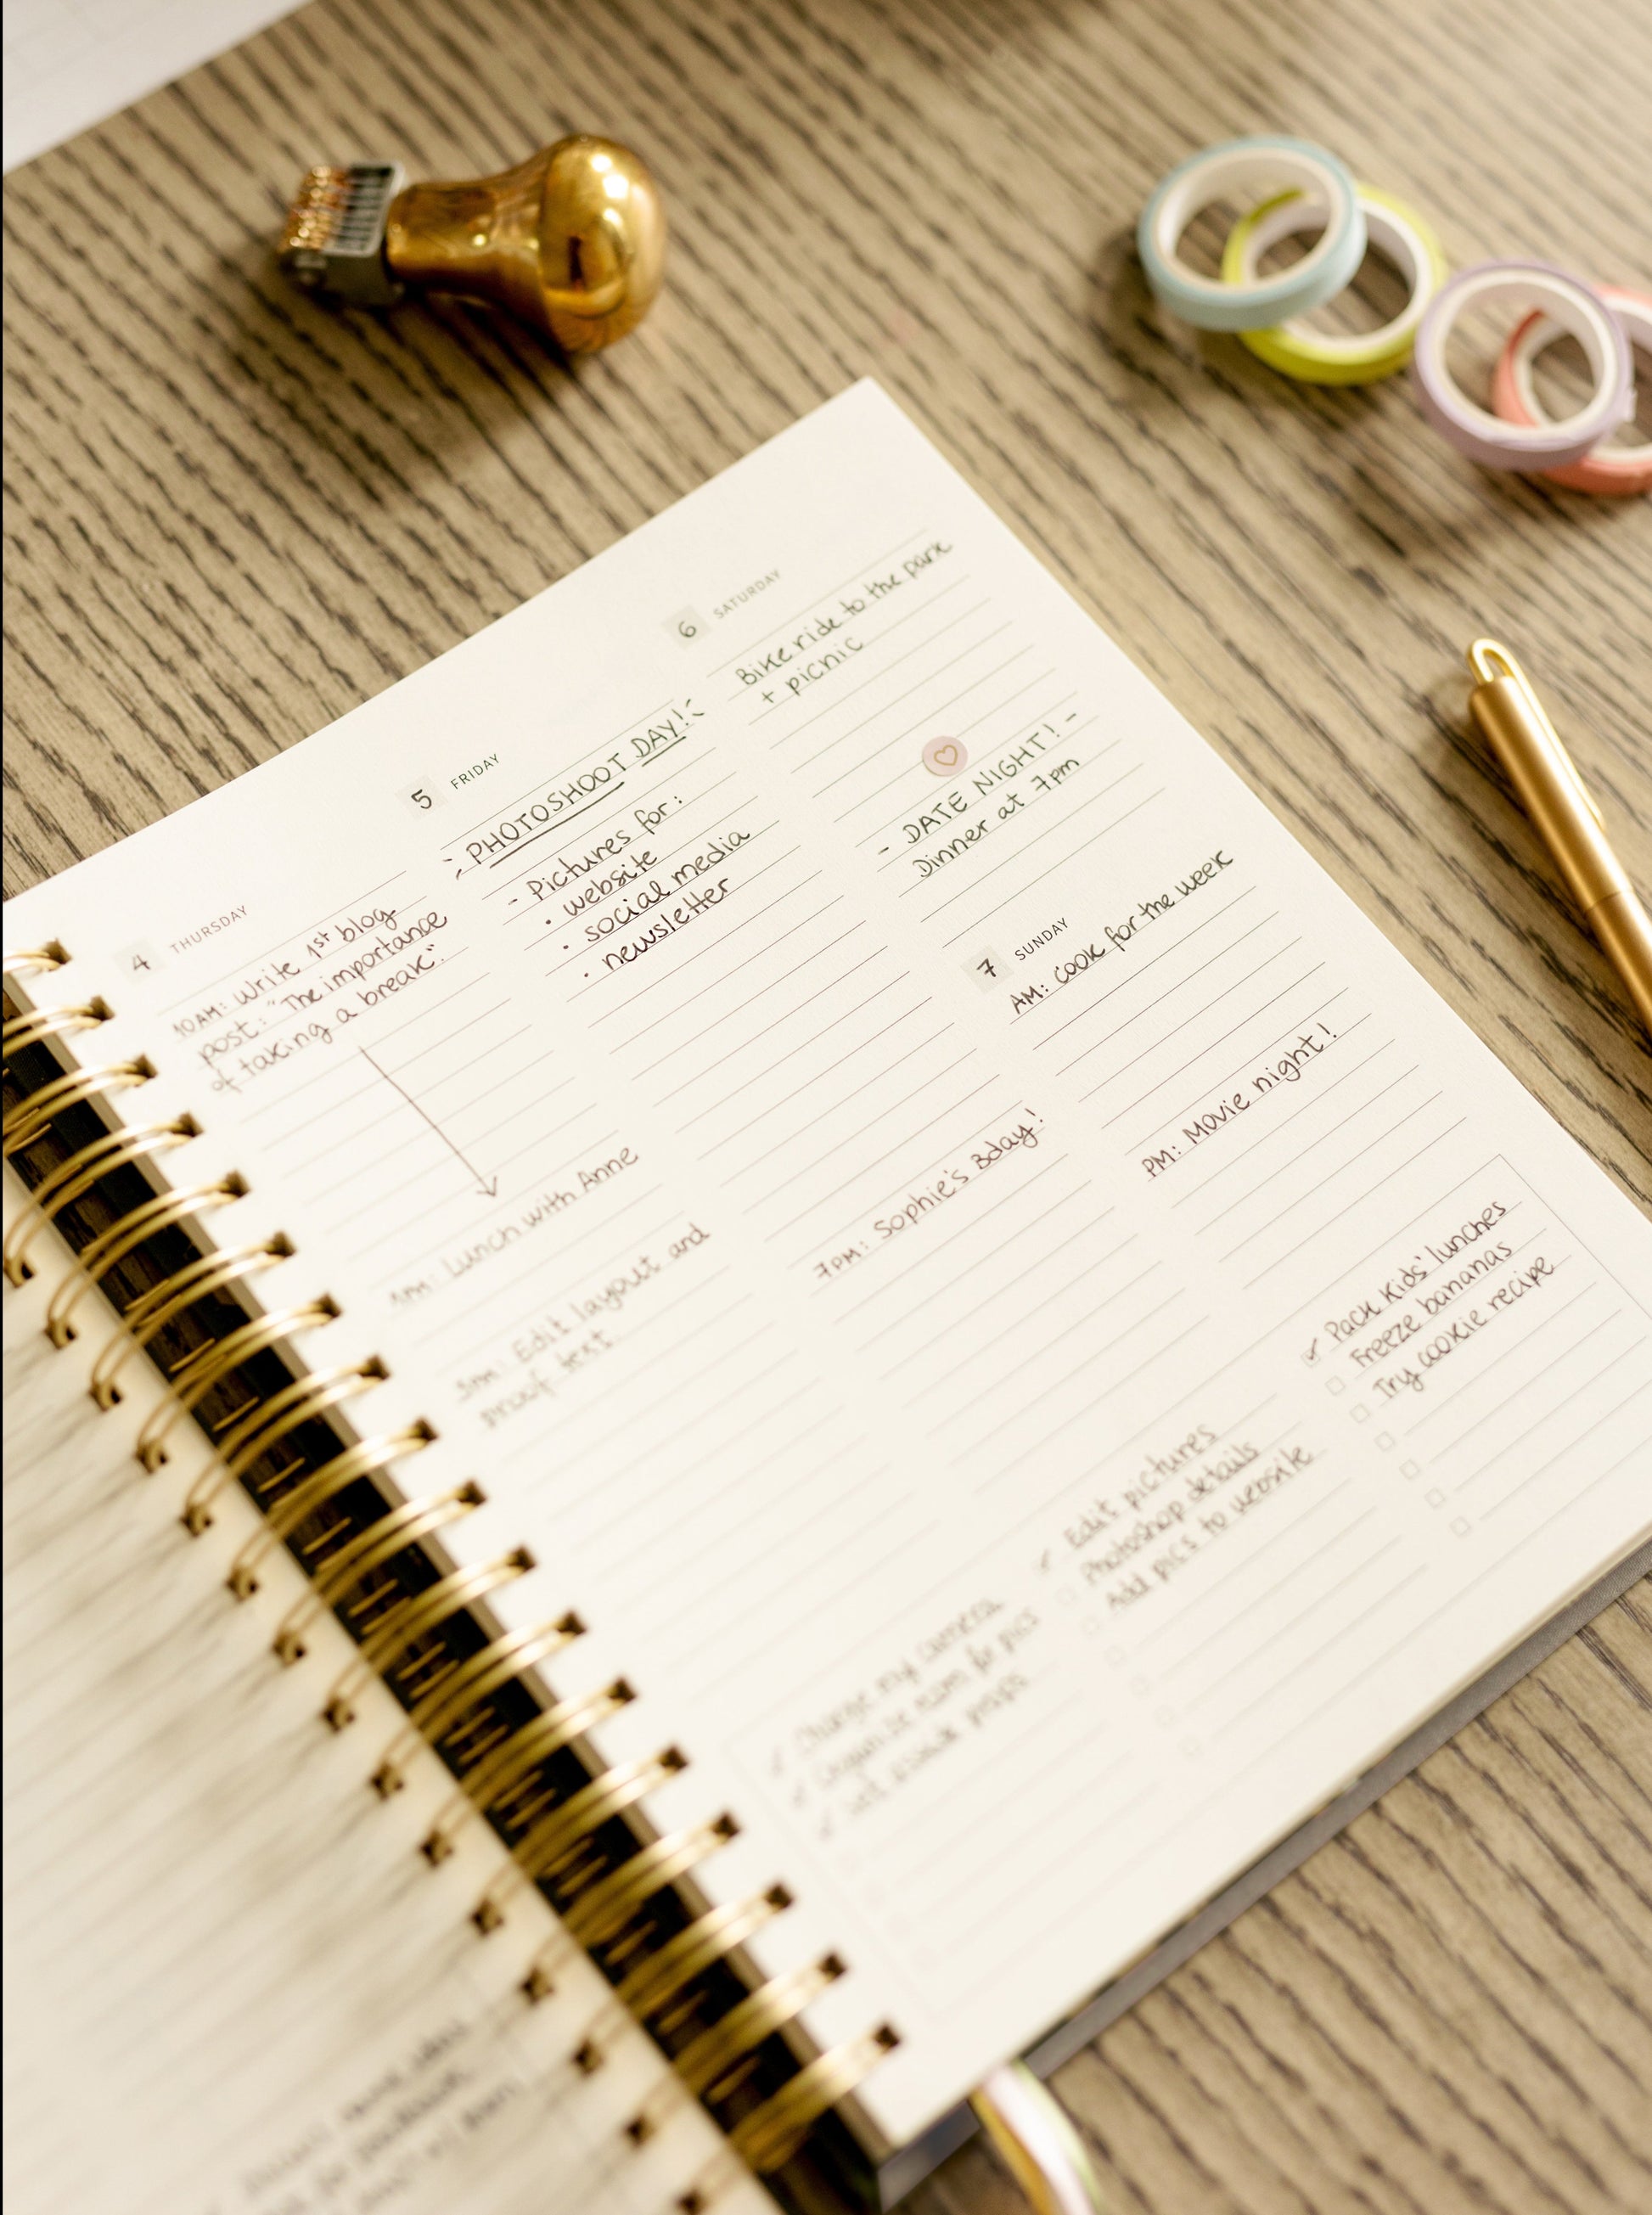 4 THURSDAY
10AM: Write 1st blog
post: "The importance
of taking a break".
1PM: Lunch with Anne
Edit layout and
proof text
Charge my camera
Organize room for pics
5 FRIDAY
PHOTOSHOOT DAY!
- Pictures for:
• website
• social media
• newsletter
7PM: Sophie's Bday!
Edit pictures
Photoshop details
Add pics to website
6 SATURDAY
Bike ride to the park
+ picnic
- DATE NIGHT! -
Dinner at 7pm
7 SUNDAY
AM: Cook for the week
PM: Movie night!
Pack Kids' lunches
Freeze bananas
Try cookie recipe